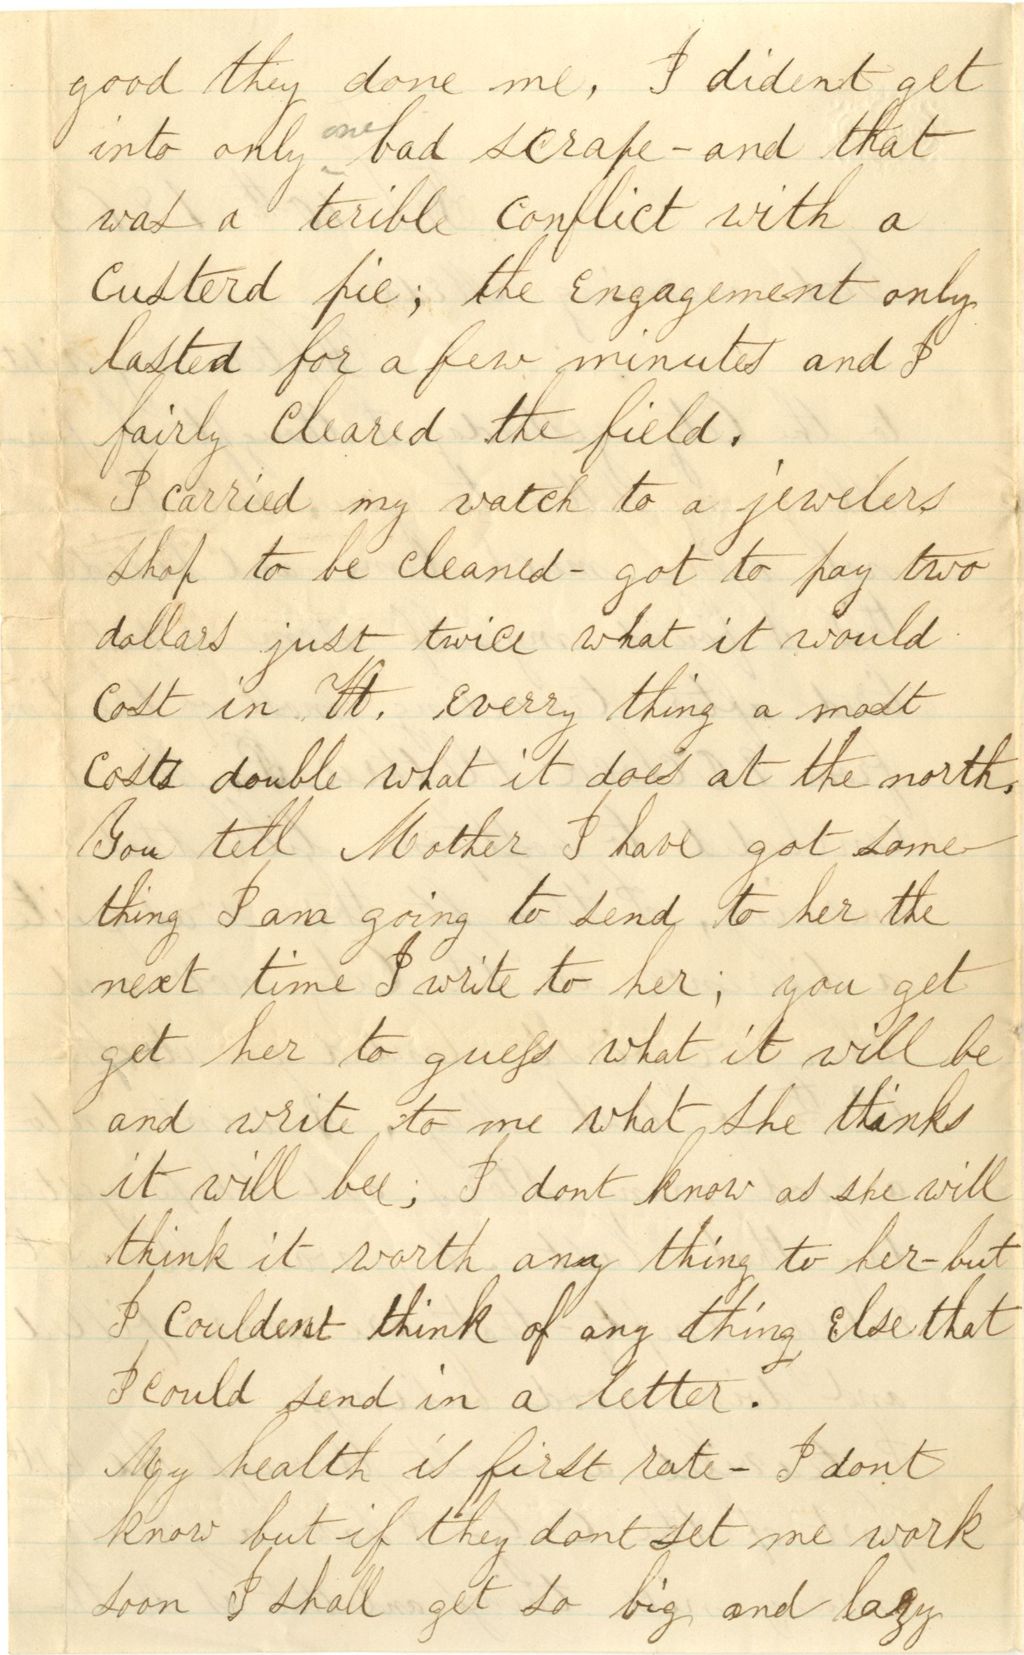 good they done me, I dident get
into only one bad scrape - and that
was a terible conflict with a
Custerd pie; the Engagement only
lasted for a few minutes and I
fairly Cleared the field.
I carried my watch to a jewelers
shop to be cleaned - got to pay two
dollars just twice what it would
Cost in Vt. Everry thing a most
Costs double what it does at the north.
You tell Mother I have got some-
thing I am going to send to her the
next time I write to her; you get
get her to guess what it will be
and write to me what she thinks
it will bee; I dont know as she will
think it worth any thing to her - but
I Couldent think of any thing Else that
I Could send in a letter.
My health is first rate - I dont
know but if they dont set me work
soon I shall get so big and lazy